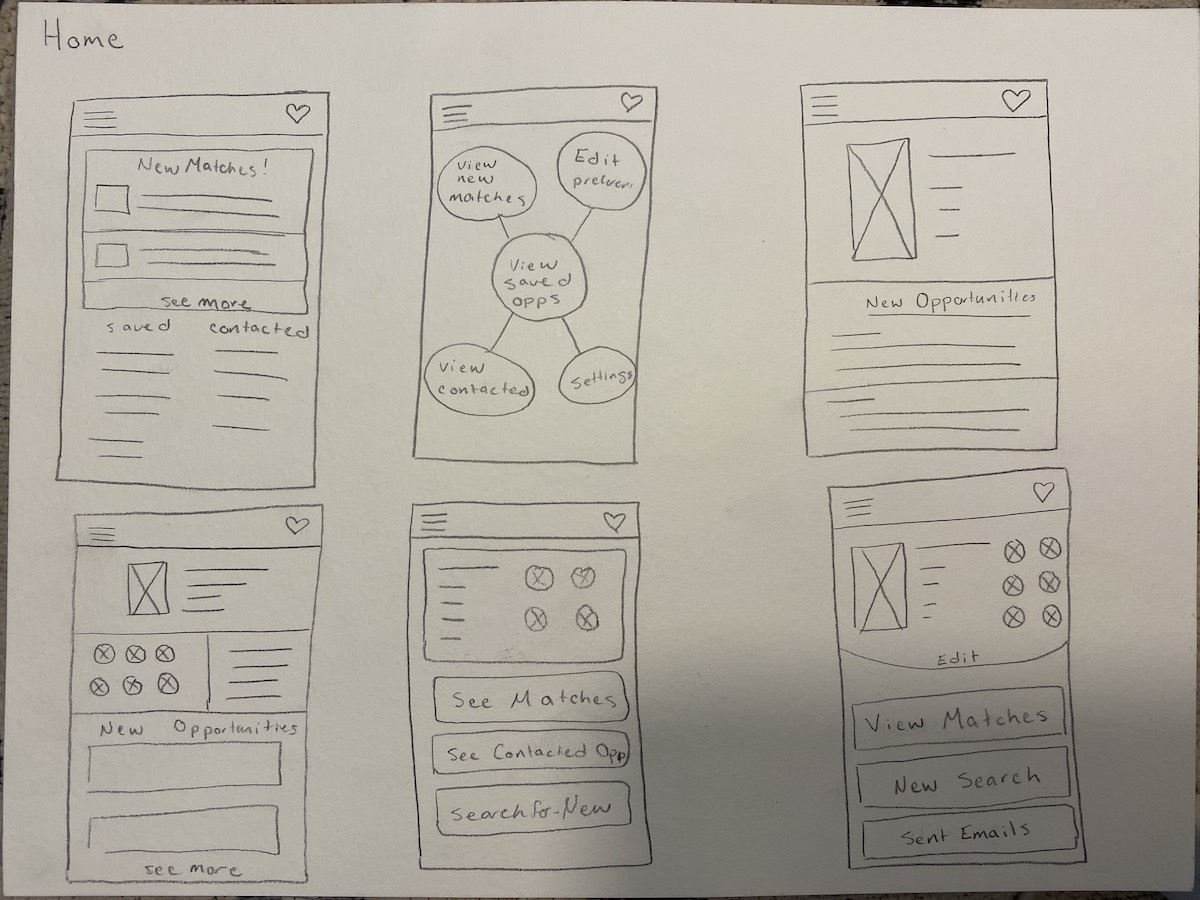 Home
New Matches!
see more
saved
contacted
View
new
matches
Edit
View
saved
opps
View
contacted
settings
New Opportunities
New Opportunities
see more
See Matches
See Contacted Opp
Search for New
Edit
View Matches
New Search
Sent Emails